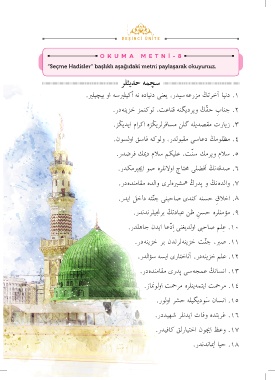 BEŞİNCİ ÜNİTE
OKUMA METNİ - 8
"Seçme Hadisler" başlıklı aşağıdaki metni paylaşarak okuyunuz.
سچمه حديثلر
١. دنيا آخرتڭ مزرعه‌سيدر. يعنى دنياده نه اكيليرسه او بيچيلير.
٢. جناب حقّڭ ويرديگنه قناعت، توكنمز خزينه‌در.
٣. زيارت مقصديله گلن مسافرلريڭزه اكرام ايديڭز.
٤. مظلومڭ دعاسى مقبولدر. ولوكه فاسق اولسون.
٥. سلام ويرمك سنّت، عليكم سلام ديمك فرضدر.
٦. صدقه‌نڭ افضلى محتاج اولانلره صو ايچيرمكدر.
٧. والده‌نڭ و پدرڭ همشيره‌لرى والده مقامنده‌در.
٨. اخلاق حسنه كندى صاحبنى جنّته داخل ايدر.
٩. مؤمنلره حسن ظن عبادتڭ برنجيلرندندر.
١٠. علم صاحبى اولديغنى ادّعا ايدن جاهلدر.
١١. صبر، جنّت خزينه‌لرندن بر خزينه‌در.
١٢. علم خزينه‌در. آناختارى ايسه سؤالدر.
١٣. انسانڭ عمجه‌سى پدرى مقامنده‌در.
١٤. مرحمت ايتمه‌ينلره مرحمت اولونماز.
١٥. انسان سوديگيله حشر اولور.
١٦. غربتده وفات ايدنلر شهيددر.
١٧. وعظ ايچون اختيارلق كافيدر.
١٨. حيا ايماندندر.